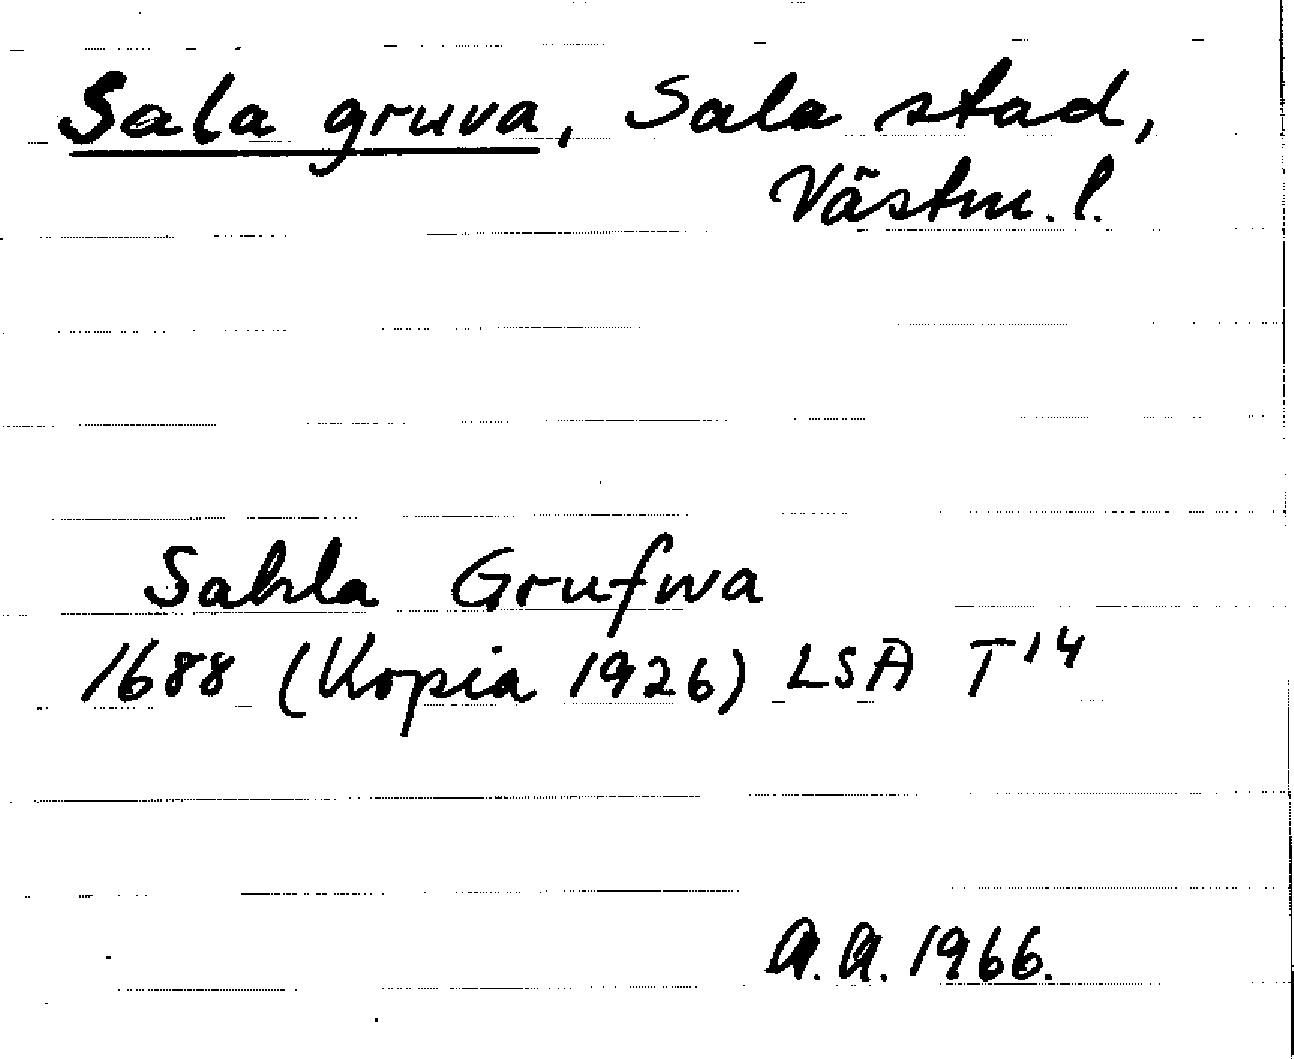 Sala gruva, Sala stad,
Västm. l.
Sahla Grufwa
1688 (Kopia 1926) LSA T14
A.A. 1966.